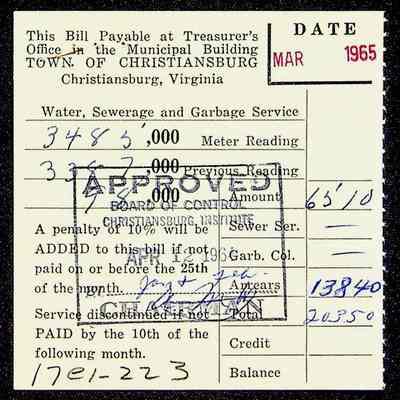 This Bill Payable at Treasurer's
Office in the Municipal Building
TOWN OF CHRISTIANSBURG
Christiansburg, Virginia
DATE
MAR 1965
Water, Sewerage and Garbage Service
3485,000 Meter Reading
3387,000 Previous Reading
98,000 Amount 65 10
APPROVED
BOARD OF CONTROL
CHRISTIANSBURG, INSTITUTE
APR 12 1965
CHAIRMAN
A penalty of 10% will be
ADDED to this bill if not
paid on or before the 25th
of the month.
Sewer Ser. —
Garb. Col. —
Jan + Feb.
Arrears 138 40
Service discontinued if not
PAID by the 10th of the
following month.
Total 203 50
Credit
Balance
17e1-223